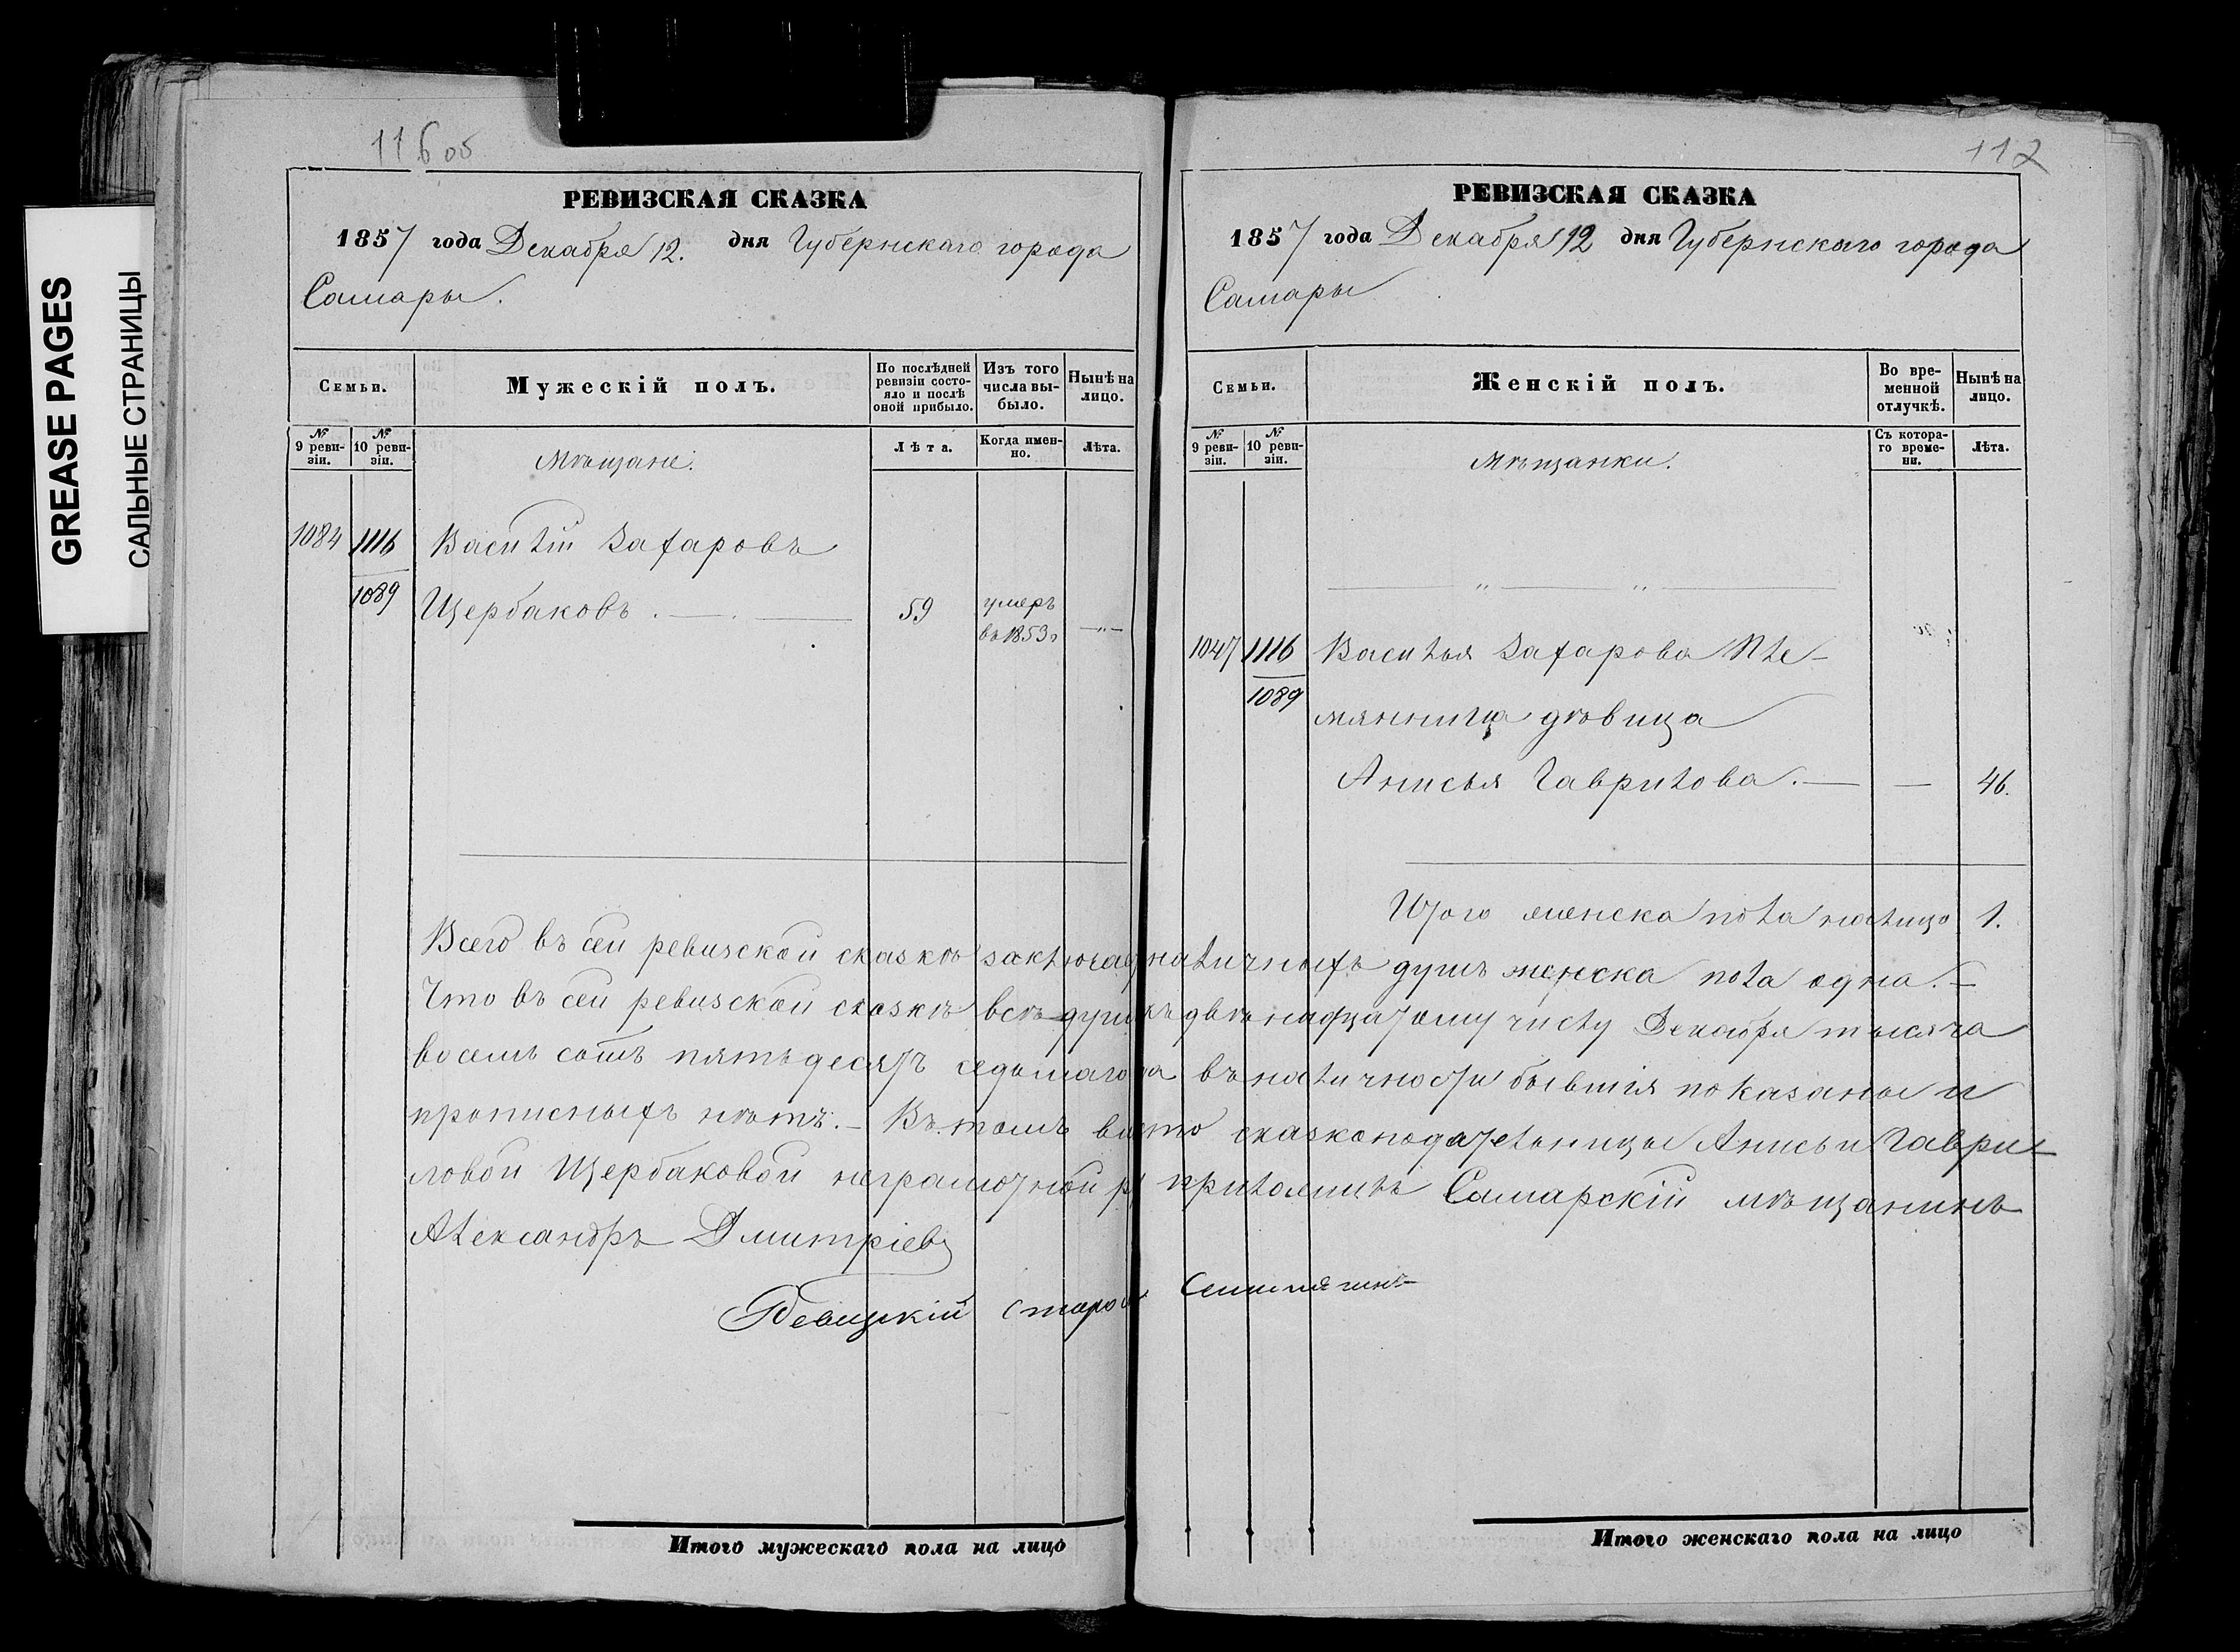 GREASE PAGES
САЛЬНЫЕ СТРАНИЦЫ
116 об
РЕВИЗСКАЯ СКАЗКА
1857 года Декабря 12. дня Губернскаго города
Самары.
Семьи.
Мужескій полъ.
По послѣдней ревизіи состояло и послѣ оной прибыло.
Изъ того числа выбыло.
Нынѣ на лицо.
№ 9 ревизіи.
№ 10 ревизіи.
Мѣщане.
Лѣта.
Когда именно.
Лѣта.
1084 1116 Василій Захаровъ
1089 Щербаковъ. 59 умеръ
въ 1853 г.
112
РЕВИЗСКАЯ СКАЗКА
1857 года Декабря 12 дня Губернскаго города
Самары
Семьи.
Женскій полъ.
Во временной отлучкѣ.
Нынѣ на лицо.
№ 9 ревизіи.
№ 10 ревизіи.
Мѣщанки.
Съ котораго времени.
Лѣта.
1047 1116 Василья Захарова Пле-
1089 мянница дѣвица
Анисья Гаврилова. — — 46.
Итого женска пола налицо 1.
Всего въ сей ревизской сказкѣ наличныхъ душъ женска пола одна. —
Что въ сей ревизской сказкѣ всѣ души къ двѣнадцатому числу Декабря тысяча
восемь сотъ пятьдесятъ седьмаго въ наличности бывшія показаны и
прописныхъ нѣтъ. — Въ томъ вмѣсто сказкоподательницы Анисьи Гаври-
ловой Щербаковой неграмотной приложилъ Самарскій мѣщанинъ
Александръ Дмитріевъ
Итого мужескаго пола на лицо
Итого женскаго пола на лицо